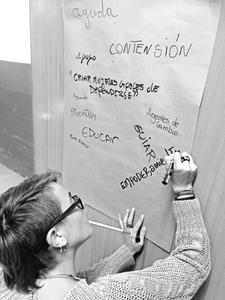 ayuda
Apoyo
CONTENSIÓN
"CRIAR MUJERES CAPACES DE
DEFENDERSE"
Orientar
Agentes de
Cambio
EDUCAR
GUIAR
EMPODERAMIENTO